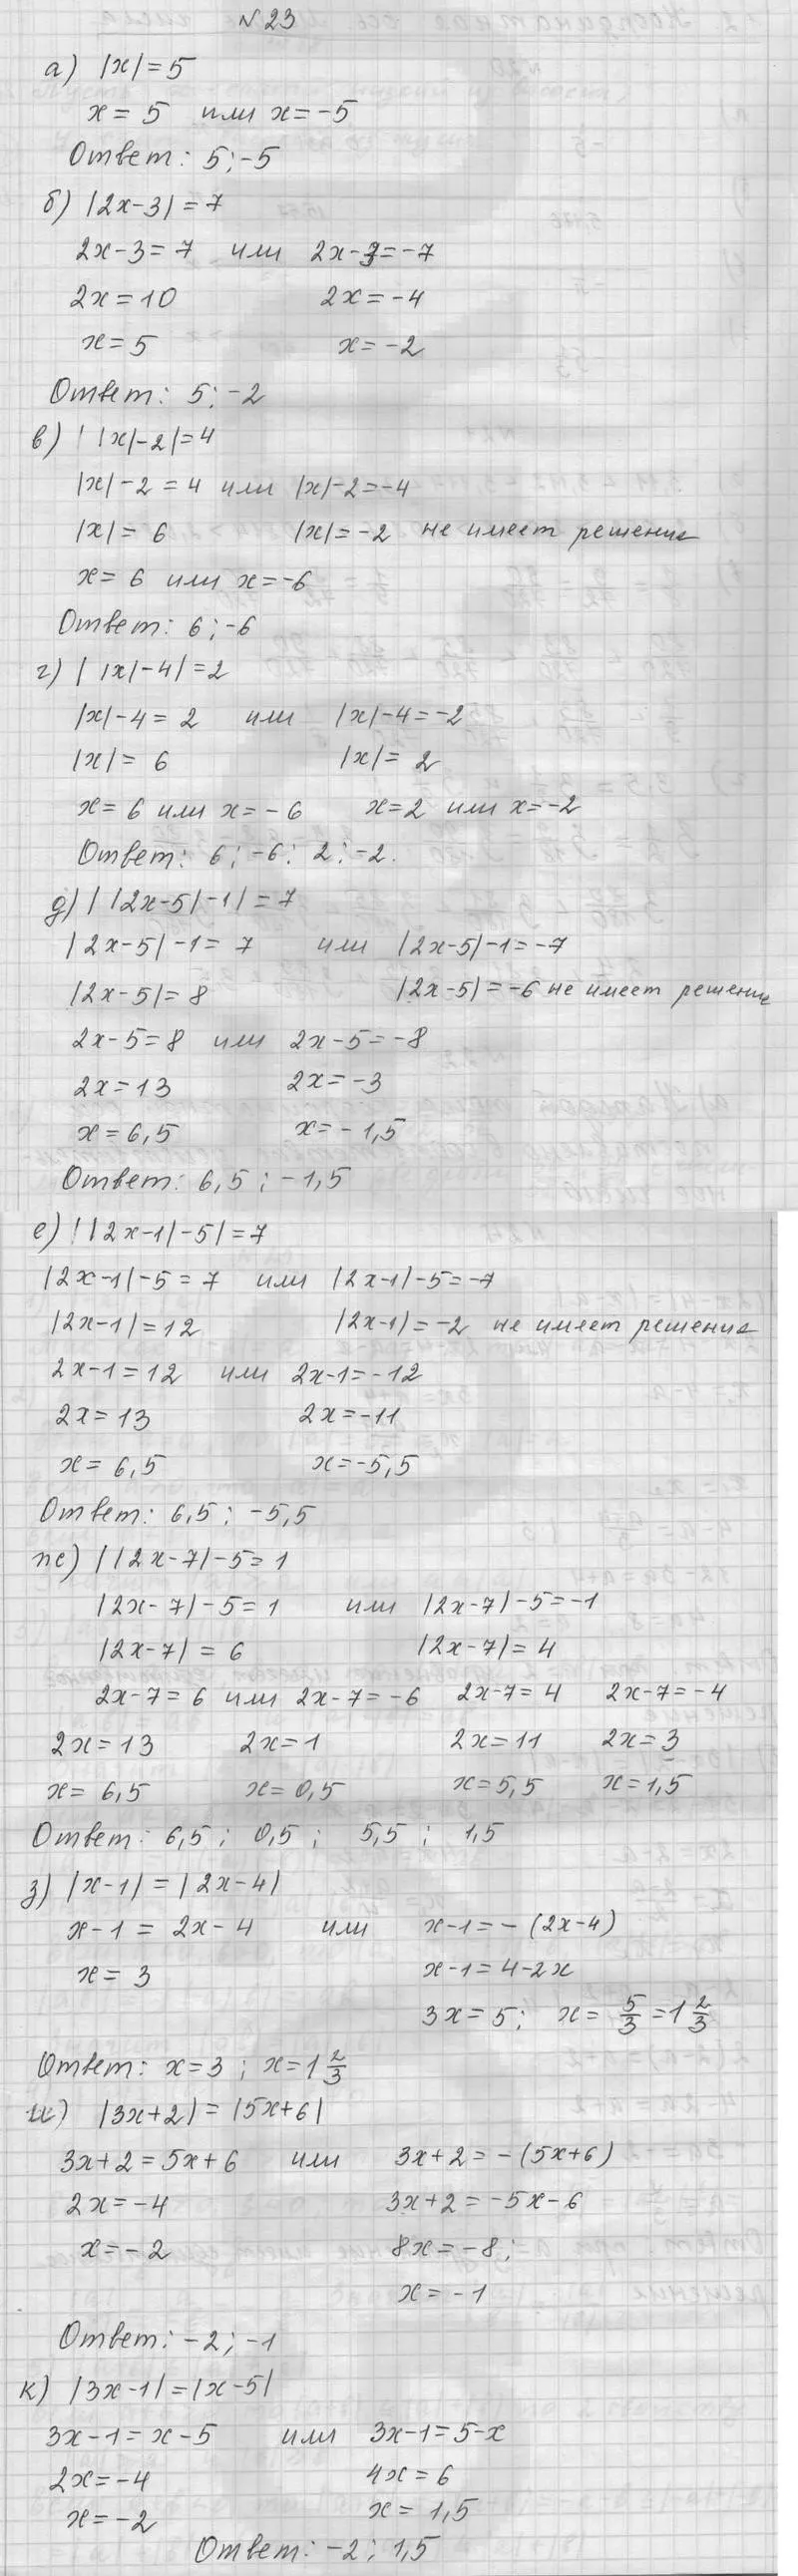 №23
а) |x|=5
x=5 или x=-5
Ответ: 5;-5
б) |2x-3|=7
2x-3=7 или 2x-3=-7
2x=10 2x=-4
x=5 x=-2
Ответ: 5;-2
в) ||x|-2|=4
|x|-2=4 или |x|-2=-4
|x|=6 |x|=-2 не имеет решение
x=6 или x=-6
Ответ: 6;-6
г) ||x|-4|=2
|x|-4=2 или |x|-4=-2
|x|=6 |x|=2
x=6 или x=-6 x=2 или x=-2
Ответ: 6;-6; 2;-2.
д) ||2x-5|-1|=7
|2x-5|-1=7 или |2x-5|-1=-7
|2x-5|=8 |2x-5|=-6 не имеет решение
2x-5=8 или 2x-5=-8
2x=13 2x=-3
x=6,5 x=-1,5
Ответ: 6,5; -1,5
е) ||2x-1|-5|=7
|2x-1|-5=7 или |2x-1|-5=-7
|2x-1|=12 |2x-1|=-2 не имеет решение
2x-1=12 или 2x-1=-12
2x=13 2x=-11
x=6,5 x=-5,5
Ответ: 6,5; -5,5
ж) ||2x-7|-5=1
|2x-7|-5=1 или |2x-7|-5=-1
|2x-7|=6 |2x-7|=4
2x-7=6 или 2x-7=-6 2x-7=4 2x-7=-4
2x=13 2x=1 2x=11 2x=3
x=6,5 x=0,5 x=5,5 x=1,5
Ответ: 6,5; 0,5; 5,5; 1,5
з) |x-1|=|2x-4|
x-1=2x-4 или x-1=-(2x-4)
x=3 x-1=4-2x
3x=5; x=5/3=1 2/3
Ответ: x=3; x=1 2/3
и) |3x+2|=|5x+6|
3x+2=5x+6 или 3x+2=-(5x+6)
2x=-4 3x+2=-5x-6
x=-2 8x=-8;
x=-1
Ответ: -2;-1
к) |3x-1|=|x-5|
3x-1=x-5 или 3x-1=5-x
2x=-4 4x=6
x=-2 x=1,5
Ответ: -2; 1,5